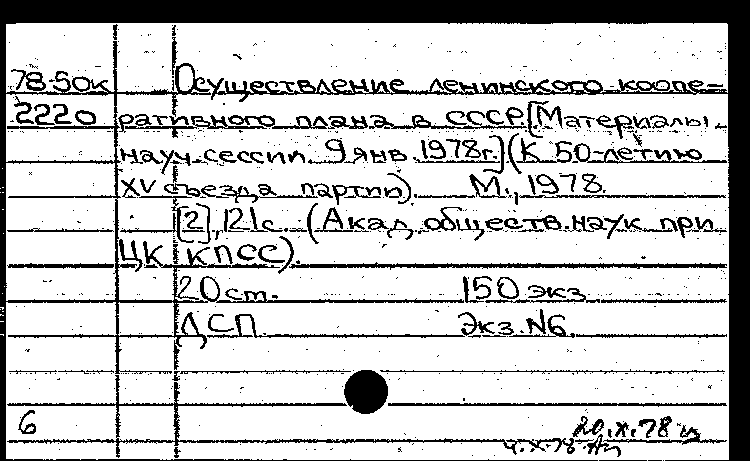 78-50к Осуществление ленинского коопе=
2220 ративного плана в СССР. [Материалы
науч. сессии. 9 янв. 1978г.] (К 50-летию
XV съезда партии). М., 1978.
[2], 121с. (Акад. обществ. наук при
ЦК КПСС).
20 ст. 150 экз
ДСП. Экз. N6.
6 20.X.78
4.X.78